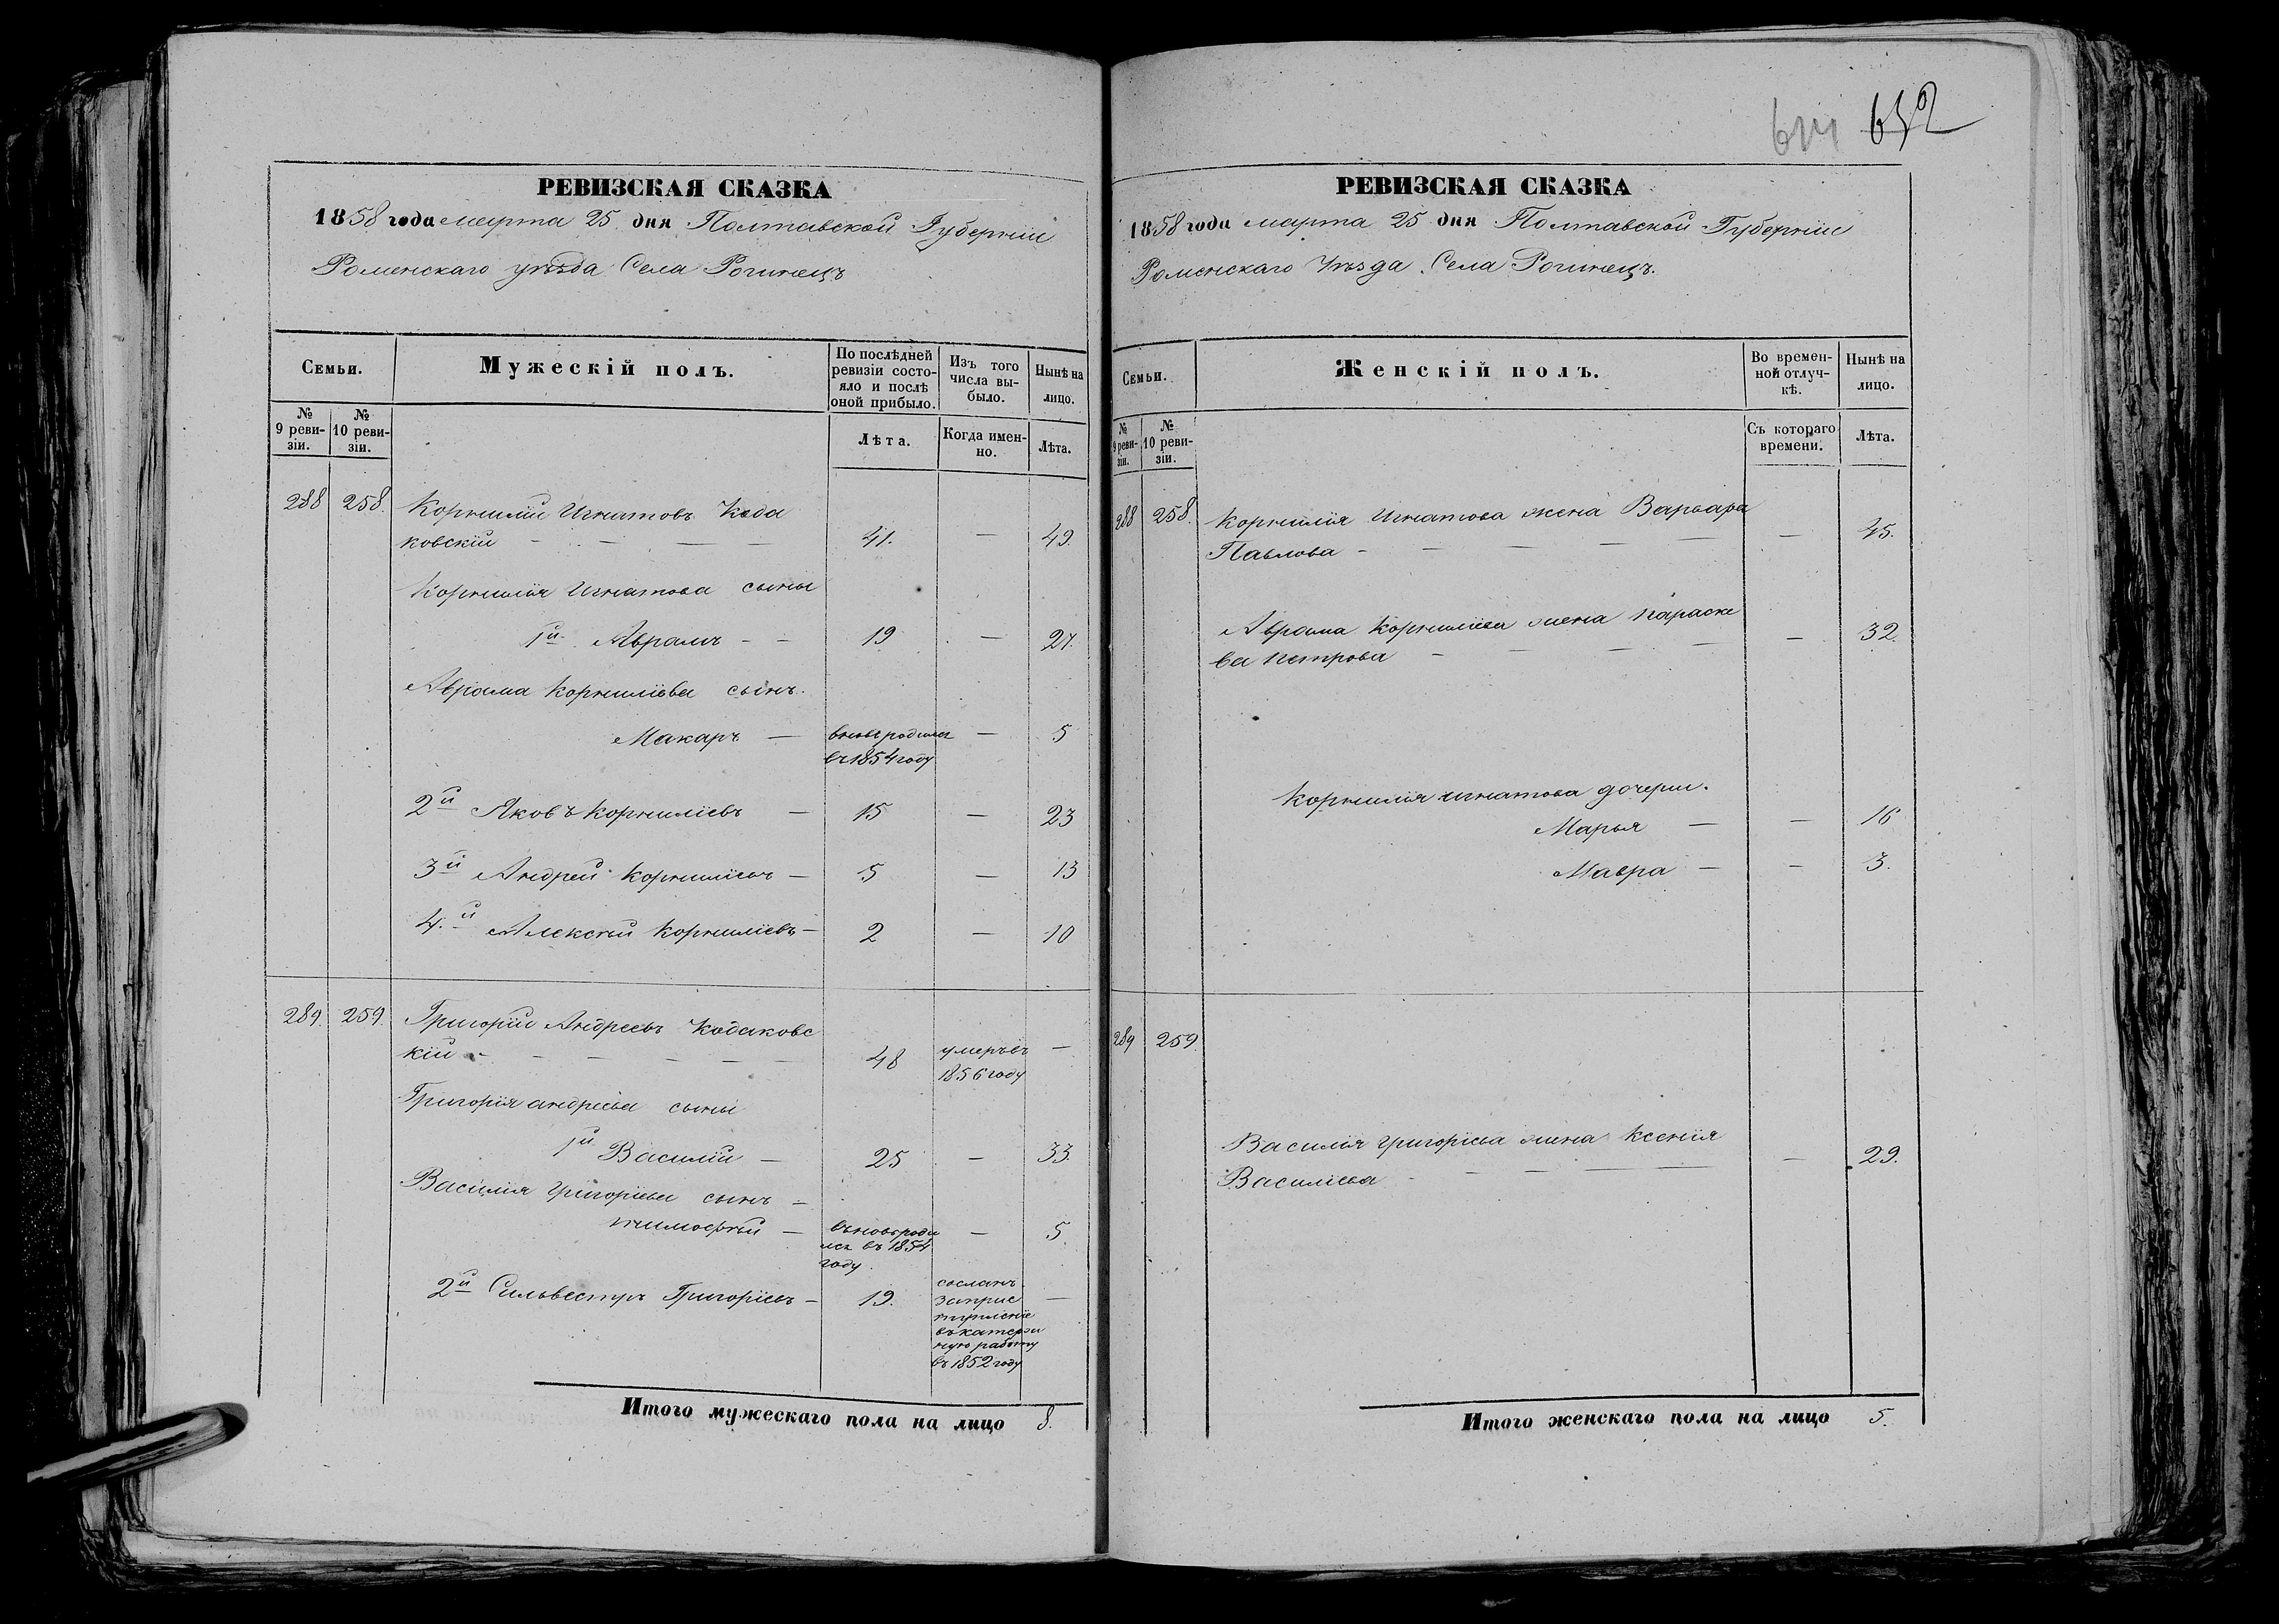 РЕВИЗСКАЯ СКАЗКА
1858 года марта 25 дня Полтавской Губерніи
Роменскаго уѣзда Села Рогинецъ
Семьи.
Мужескій полъ.
По послѣдней ревизіи состояло и послѣ оной прибыло.
Изъ того числа выбыло.
Нынѣ на лицо.
№ 9 ревизіи.
№ 10 ревизіи.
Лѣта.
Когда именно.
Лѣта.
288 258. Корнилій Игнатовъ Кода
ковскій - - - - 41. - 49.
Корнилія Игнатова сыны
1й Аврамъ - - 19 - 27.
Аврама Корниліева сынъ.
Макаръ - вновь родился - 5
въ 1854 году
2й Яковъ Корниліевъ - 15 - 23
3й Андрей Корниліевъ - 5 - 13
4.й Алексѣй Корниліевъ - 2 - 10
289. 259. Григорій Андреевъ Кодаковс
кій - - - - - 48 умеръ въ -
1856 году
Григорія андріева сыны
1й Василій - 25 - 33.
Василія Григоріева сынъ -
тимофѣй - вновь роди - 5.
лся въ 1854
году.
2й Сильвестръ Григоріевъ - 19. сосланъ -
запрес
тупленіе
въ каторж
ную работу
въ 1852 году
Итого мужескаго пола на лицо 8.
652
РЕВИЗСКАЯ СКАЗКА
1858 года марта 25 дня Полтавской Губерніи
Роменскаго Уѣзда. Села Рогинецъ.
Семьи.
Женскій полъ.
Во временной отлучкѣ.
Нынѣ на лицо.
№ 9 ревизіи.
№ 10 ревизіи.
Съ котораго времени.
Лѣта.
288 258. Корнилія Игнатова жена Варвара
Павлова - - - - - - 45.
Аврама Корниліева жена Параске
ва петрова - - - - - 32.
Корнилія игнатова дочери.
Марья - - 16
Мавра - - 3.
289 259.
Василія григоріева жена Ксенія
Василіева - - - - - 29.
Итого женскаго пола на лицо 5.